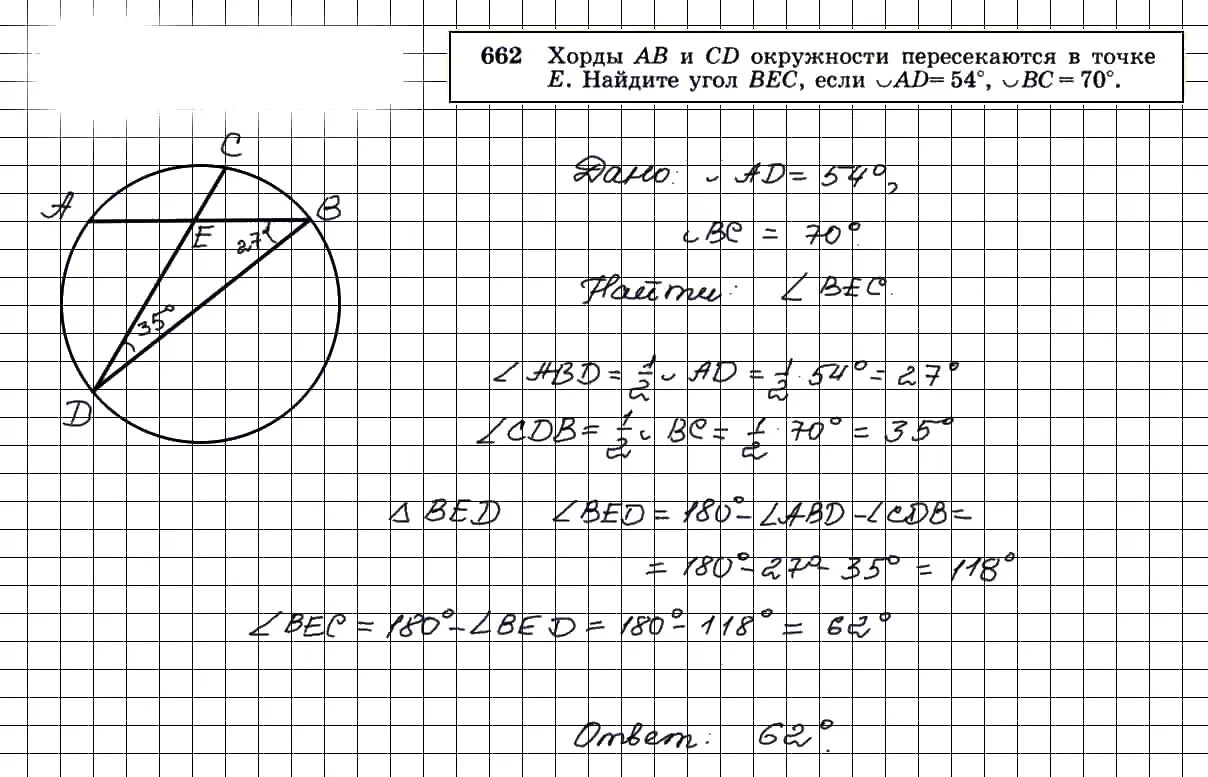 662 Хорды AB и CD окружности пересекаются в точке
E. Найдите угол BEC, если ◡AD= 54°, ◡BC = 70°.
C
A
B
E
27°
35°
D
Дано: ◡ AD = 54°,
◡BC = 70°.
Найти: ∠ BEC.
∠ ABD = 1/2 ◡ AD = 1/2 · 54° = 27°
∠CDB = 1/2 ◡ BC = 1/2 · 70° = 35°
Δ BED ∠BED = 180° - ∠ABD - ∠CDB =
= 180° - 27° - 35° = 118°
∠BEC = 180° - ∠BED = 180° - 118° = 62°
Ответ: 62°.